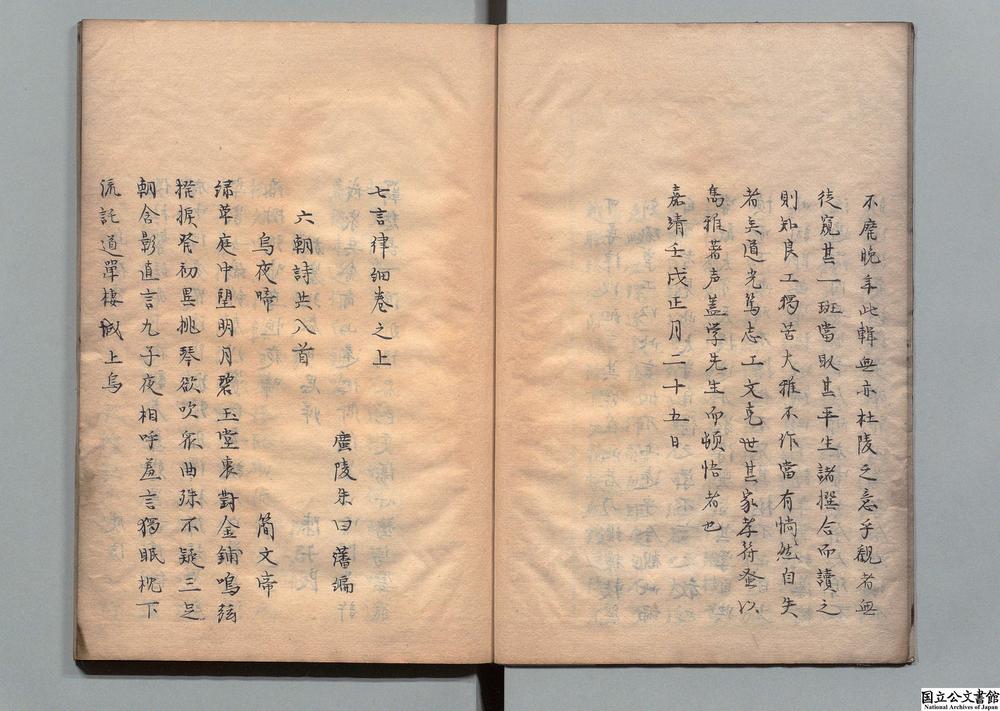 不廢晚年此輯無亦杜陵之意乎觀者無
徒窺其一斑當取其平生諸撰合而讀之
則知良工獨苦大雅不作當有惝然自失
者矣道光篤志工文克世其家孝符蚤以
雋雅著声盖学先生而頓悟者也
嘉靖壬戌正月二十五日
七言律細卷之上
廣陵朱曰藩編
六朝詩共八首
烏夜啼 簡文帝
綠草庭中望明月碧玉堂裏對金鋪鳴絃
撥捩發初異挑琴欲吹衆曲殊不疑三足
朝含影直言九子夜相呼羞言獨眠枕下
流託道單棲城上烏
国立公文書館
National Archives of Japan